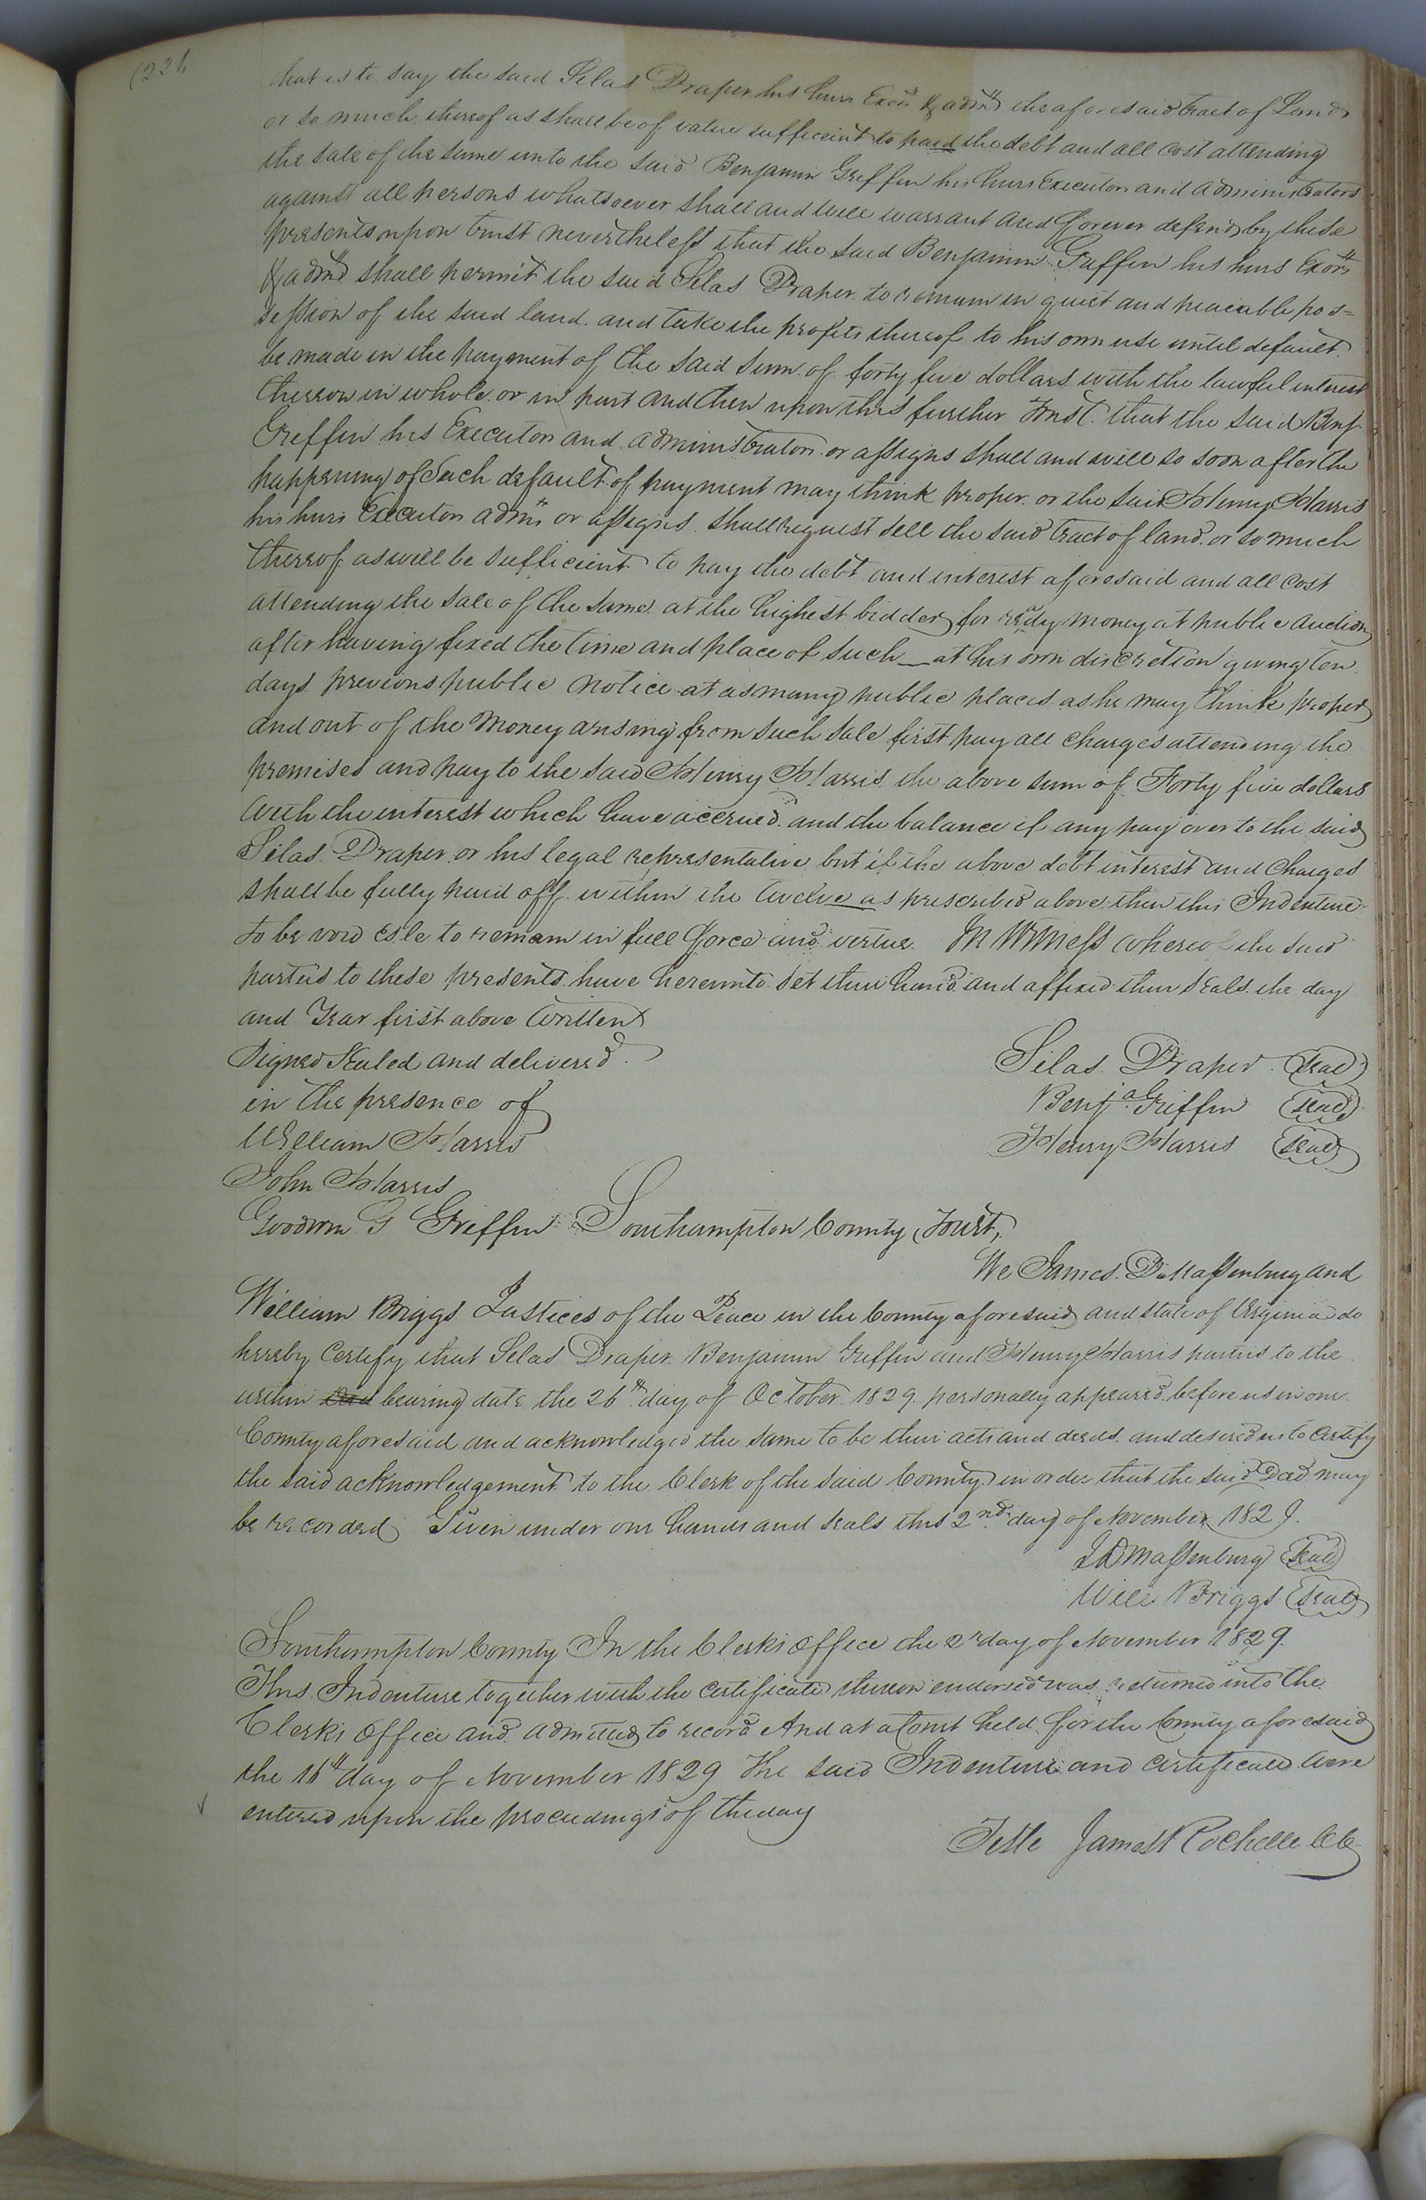 that is to say the said Silas Draper his heirs Exors & admrs the aforesaid tract of Land
or so much thereof as shall be of value sufficient to paid the debt and all cost attending
the sale of the same unto the said Benjamin Griffin his heirs Executors and administrators
against all persons whatsoever shall and will warrant and forever defend by these
presents upon trust nevertheless that the said Benjamin Griffin his heirs Exors
& admrs shall permit the said Silas Draper to remain in quiet and peaceable pos=
session of the said land and take the profits thereof to his own use until default
be made in the payment of the said sum of forty five dollars with the lawful interest
thereon in whole or in part and then upon this further Trust that the said Benj
Griffin his Executors and administrators or assigns shall and will so soon after the
happening of such default of payment may think proper or the said Henry Harris
his heirs Executors admrs or assigns shall request sell the said tract of land or so much
thereof as will be sufficient to pay the debt and interest aforesaid and all cost
attending the sale of the same at the highest bidder for ready money at public auction
after having fixed the time and place of such at his own discretion giving ten
days previous public notice at as many public places as he may think proper
and out of the money arising from such sale first pay all charges attending the
premises and pay to the said Henry Harris the above sum of Forty five dollars
with the interest which have accrued and the balance if any pay over to the said
Silas Draper or his legal representative but if the above debt interest and charges
shall be fully paid off within the twelve as prescribed above then this Indenture
to be void else to remain in full force and vertue In Witness whereof the said
parties to these presents have hereunto set their hand and affixed their seals the day
and Year first above written
Signed Sealed and delivered
in the presence of
William Harris
John Harris
Goodwin G Griffin
Silas Draper Seal
Benja Griffin Seal
Henry Harris Seal
Southampton County Towit,
We James D Massenburg and
William Briggs Justices of the Peace in the County aforesaid and state of Virginia do
hereby Certify that Silas Draper Benjamin Griffin and Henry Harris parties to the
within bearing date the 26th day of October 1829 personally appeared before us in our
County aforesaid and acknowledged the same to be their acts and deeds and desired us to Certify
the said acknowledgement to the Clerk of the said County in order that the said Deed may
be recorded Given under our hands and seals this 2nd day of November 1829.
J D Massenburg Seal
Will Briggs Seal
Southampton County In the Clerks Office the 2d day of November 1829.
This Indenture together with the certificate thereon endorsed was returned into the
Clerks Office and admitted to record And at a Court held for the County aforesaid
the 16th day of November 1829 The said Indenture and certificate were
entered upon the proceedings of the day
Teste James Rochelle CC